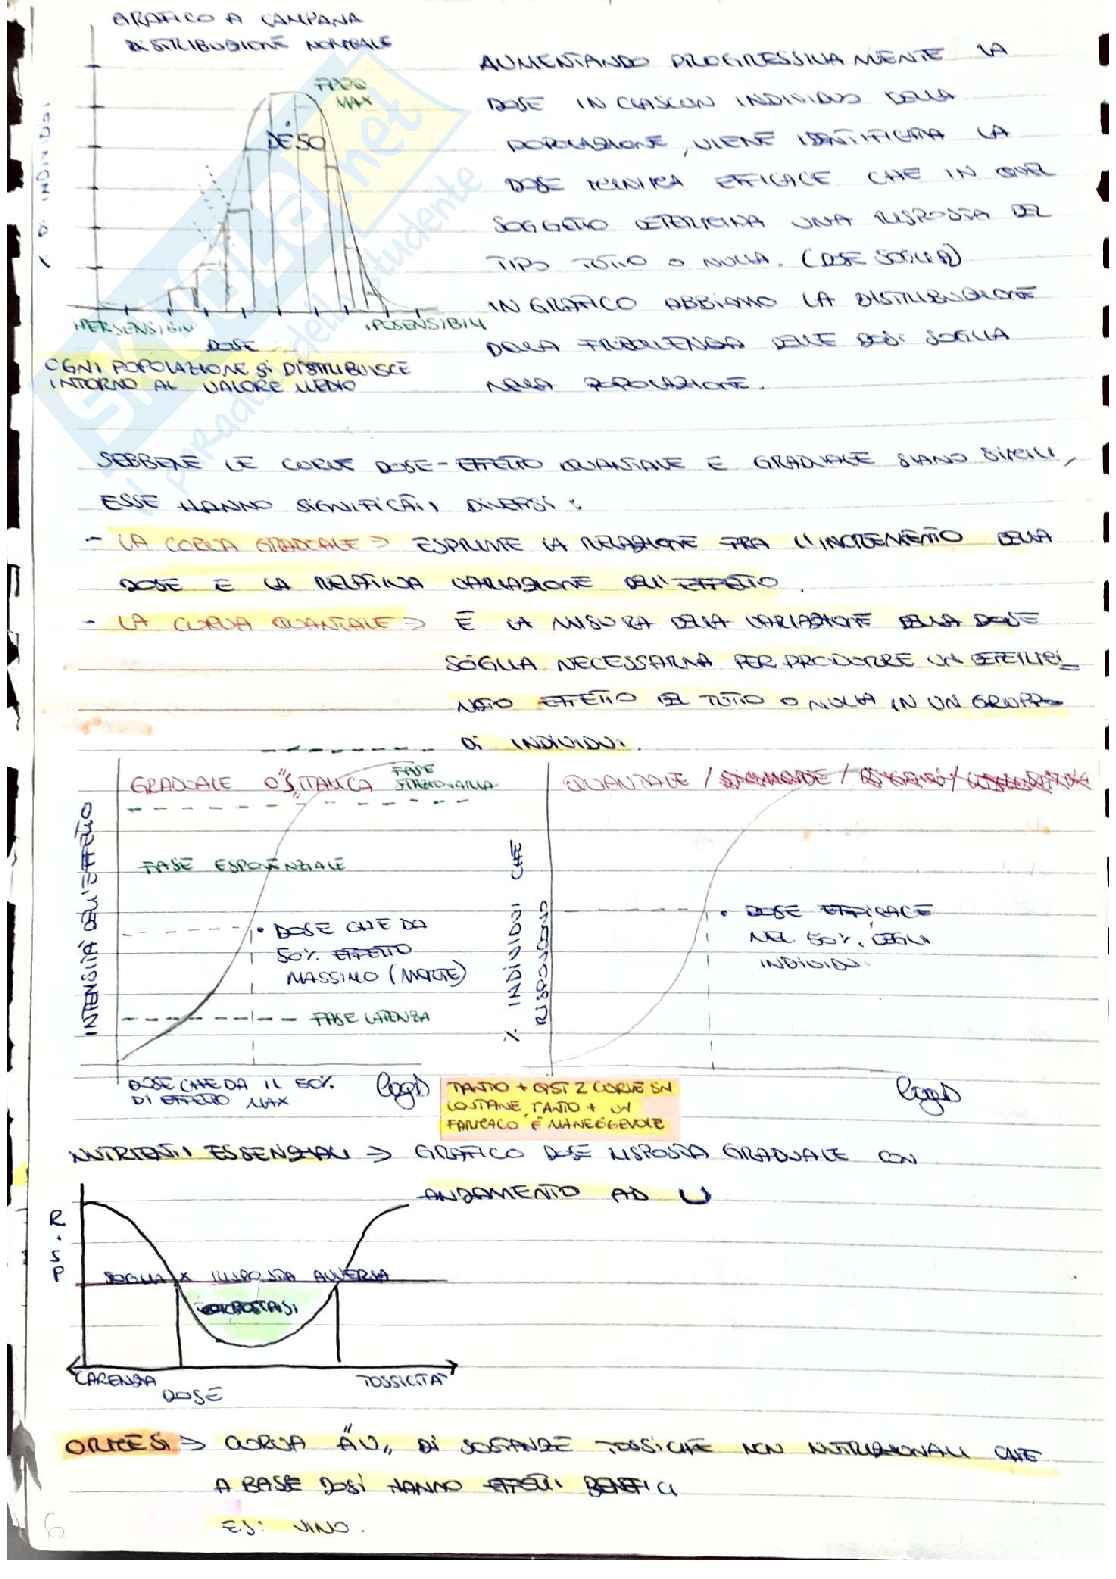 GRAFICO A CAMPANA
DISTRIBUZIONE NORMALE
% DI INDIVIDUI
MAX
DE50
IPERSENSIBILI
IPOSENSIBILI
DOSE
OGNI POPOLAZIONE SI DISTRIBUISCE
INTORNO AL VALORE MEDIO
AUMENTANDO PROGRESSIVAMENTE LA
DOSE IN CIASCUN INDIVIDUO DELLA
POPOLAZIONE, VIENE IDENTIFICATA LA
DOSE MINIMA EFFICACE CHE IN QUEL
SOGGETTO DETERMINA UNA RISPOSTA DEL
TIPO TUTTO O NULLA. (DOSE SOGLIA)
IN GRAFICO ABBIAMO LA DISTRIBUZIONE
DELLA FREQUENZA DELLE DOSI SOGLIA
NELLA POPOLAZIONE.
SEBBENE LE CURVE DOSE-EFFETTO QUANTALE E GRADUALE SIANO SIMILI,
ESSE HANNO SIGNIFICATI DIVERSI:
- LA CURVA GRADUALE => ESPRIME LA RELAZIONE FRA L'INCREMENTO DELLA
DOSE E LA RELATIVA VARIAZIONE DELL'EFFETTO.
- LA CURVA QUANTALE => È LA MISURA DELLA VARIAZIONE DELLA DOSE
SOGLIA NECESSARIA PER PRODURRE UN DETERMI_
NATO EFFETTO DEL TUTTO O NULLA IN UN GRUPPO
DI INDIVIDUI.
GRADUALE O "SITAICA
FASE STAZIONARIA
INTENSITÀ DELL'EFFETTO
FASE ESPONENZIALE
• DOSE CHE DA
50% EFFETTO
MASSIMO (MORTE)
FASE LATENZA
DOSE CHE DA IL 50%
DI EFFETTO MAX
logD
QUANTALE /
% INDIVIDUI CHE
RISPONDONO
• DOSE EFFICACE
NEL 50% DEGLI
INDIVIDUI
logD
TANTO + QST 2 CURVE SN
LONTANE, TANTO + UN
FARMACO È MANEGGEVOLE
NUTRIENTI ESSENZIALI => GRAFICO DOSE RISPOSTA GRADUALE CON
ANDAMENTO AD U
RISP
SOGLIA X RISPOSTA AVVERSA
OMEOSTASI
CARENZA
DOSE
TOSSICITÀ
ORMESI => CURVA A "U" DI SOSTANZE TOSSICHE NON NUTRIZIONALI CHE
A BASSE DOSI HANNO EFFETTI BENEFICI
ES: VINO.
6
SKUOLA.net
il paradiso dello studente